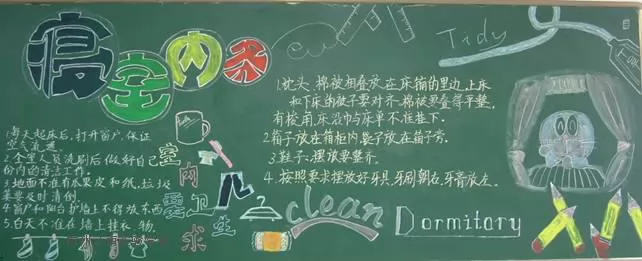 寝室内务
Tidy
1.每天起床后,打开窗户,保证
空气流通.
2.全室人员洗刷后做好自己
份内的清洁工作.
3.地面不准有瓜果皮和纸,垃圾
篓要及时清倒.
4.窗户和阳台护墙上不得放东西
5.白天不准在墙上挂衣物.
室内卫生
要求
1.枕头,棉被相叠放在床铺的里边,上床
和下床的被子要对齐.棉被要叠得平整,
床沿巾与床单不准垂下.
2.箱子放在箱柜内,
3.鞋子摆放要整齐.
4.按照要求摆放好牙具,牙刷朝右,牙膏放左.
clean
Dormitory